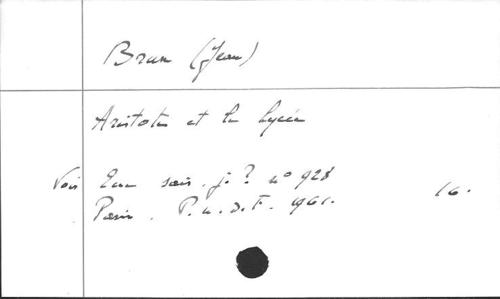 Brun (Jean)
Aristote et le Lycée
Voir Que sais. je ? n° 928
Paris. P.U.D.F. 1961. 16.